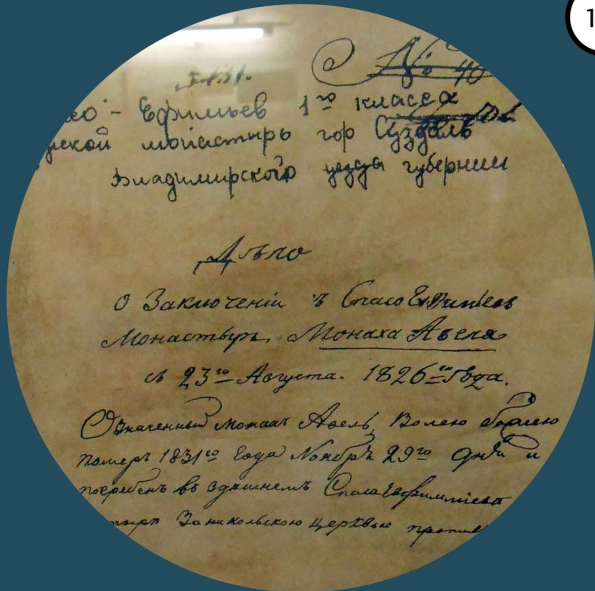 1
№ 40
Ефимьев 1го класса
монастырь гор Суздаль
Владимирского уезда губернии
Дѣло
О Заключеніи в Спасо Евфиміевъ
Монастырь, Монаха Авеля
съ 23го Августа. 1826го Года.
Означенный монахъ Авель, Волею Божіею
померъ 1831го Года Ноября 29го дня и
погребенъ въ здешнемъ Спасоевфиміевъ
За никольскою Церквью